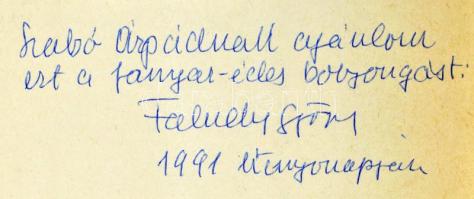 Szabó Árpádnak ajánlom
ezt a fanyar-édes bolyongást:
Faludy György
1991